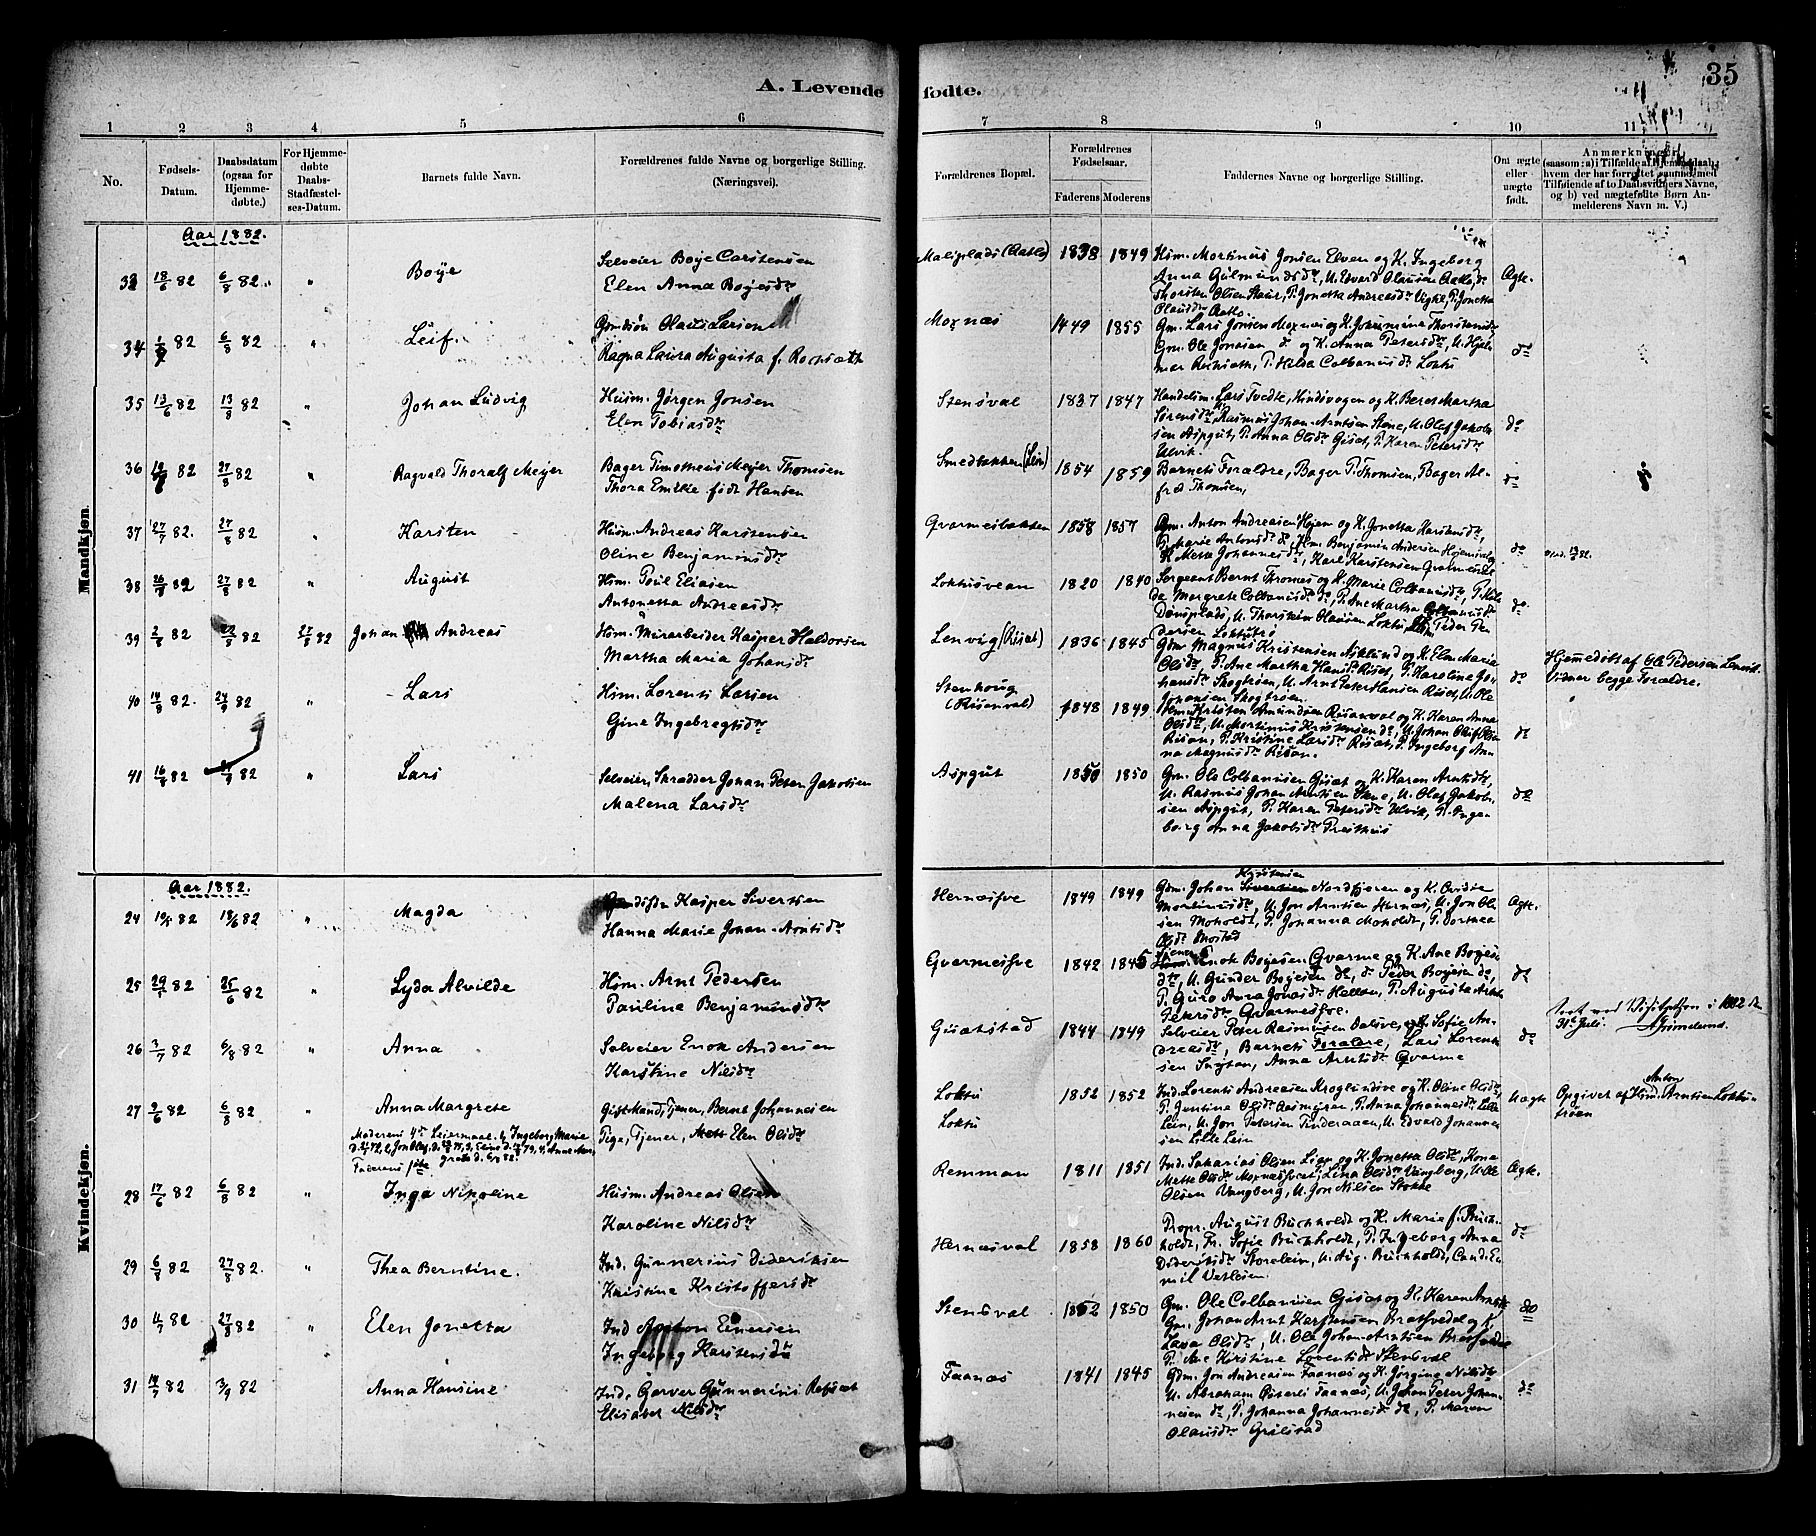 A. Levende fødte. 35
1 2 3 4 5 6 7 8 9 10 11
No.
Fødsels-Datum.
Daabsdatum (ogsaa for Hjemme-døbte.)
For Hjemme-døbte Daabs-Stadfæstel-ses-Datum.
Barnets fulde Navn.
Forældrenes fulde Navne og borgerlige Stilling. (Næringsvei).
Forældrenes Bopæl.
Forældrenes Fødselsaar.
Faderens Moderens
Faddernes Navne og borgerlige Stilling.
Om ægte eller uægte født.
Anmærkninger
(saasom: a) i Tilfælde af Hjemmedaab, hvem der har forrettet samme, med Tilføiende af to Daabsvidners Navne, og b) ved uægtefødte Børn Anmelderens Navn m. V.)
Mandkjøn.
Aar 1882.
33 18/6 82 6/8 82 " Boye
Selveier Boye Carstensen
Elen Anna Boyesdr
(Aatlo) 1838 1849
Hsm. Mortinus Jonsen Elven og K. Ingeborg
Anna Gulmundsdr, U. Edvard Olausen Aatlo,
Thorsten Olsen Staur, P. Jonetta Andreasdr Vigtil, P. Jonetta
Olausdr Aatlo
Ægte.
34 82 6/8 82 " Leif.
Gmdsøn Olaus Larsen
Ragna Laura Augusta f. Rochseth
Moxnæs 1849 1855
Gm. Lars Jonsen Moxnæs og K. Thorstensdr
Gm. Ole Jonasen do og K. Anna Petersdr, U. Hjalmer Rochseth, P. Hilda Colbanusdr Loktu
do
35 13/6 82 13/8 82 " Johan Ludvig
Husm. Jørgen Jonsen
Elen Tobiasdr
Stensval 1837 1847
Handelsm. Lars Tvedte, Hindivogen og K. Beret Martha
Sørensdr, Rasmus Johan Arntsen Stene, U. Olaf Jakobsen Aspgut, P. Anna Olsdr Gisat, P. Karen Petersdr
Ulvik.
do
36 82 27/8 82 " Ragvald Thoralf Meyer
Bager Timotheus Meyer Thomsen
Thora Emilie født Hansen
Smedbakken 1854 1859
Barnets Forældre, Bager P. Thomsen, Bager Alfred Thomsen,
do
37 27/7 82. 27/8 82 " Karsten
Husm. Andreas Karstensen
Oline Benjaminsdr
Qvarmesbakken 1858 1857
Gm. Anton Andreasen Hojem og K. Jonetta Karstensdr,
P. Marie Antonsdr do, Hsm. Benjamin Andersen
K. Mette Johannesdr, Karl Karstensen
do
38 82 27/8 82 " August
Hsm. Poul Eliasen
Antonetta Andreasdr
Loktusvean 1820 1840
Sergeant Bernt Thomes og K. Marie Colbanusdr, P.
Margrete Colbanusdr do, P. Ane Martha Colbanusdr
U. Thorstein Olausen Loktu, Peder Pedersen Loktutrø
do
39 2/8 82 82 27/8 82 Johan Andreas
Hsm. Murarbeider Kasper Haldorsen
Martha Maria Johansdr
Lenvig (Risat) 1836 1845
Gm Magnus Kristensen Asklund og K. Elen Maria
Olsdr, P. Ane Martha Hansdr Risat, P. Karoline Johansdr Skogtrøen, U. Arnt Peter Hansen Risat, U. Ole
Johansen Skogtrøen
do
Hjemmedøbt af Ole Pedersen Lenvik
Vidner begge Forældre.
40 14/8 82. 24/9 82 " Lars
Hsm. Lorents Larsen
Gine Ingebregtsdr
Stenhoug (Risenval) 1848 1849
Hsm. Kristen Amundsen Risanval og K. Karen Anna
Olsdr, U. Mortinus Kristensen do, U. Johan Oluf
Risan, P. Kristine Larsdr Risat, P. Ingeborg Anna Magnusdr Risan.
do
41 16/8 82 82 " Lars
Selveier, Skrædder Johan Peter Jakobsen
Malena Larsdr
Aspgut 1850 1850
Gm. Ole Colbanusen Gisat og K. Karen Arntsdr,
U. Rasmus Johan Arntsen Stene, U. Olaf Jakobsen Aspgut, P. Karen Petersdr Ulvik, P. Ingeborg Anna Jakobsdr Presthus
do
Kvindekjøn.
Aar 1882.
24 82 18/6 82 " Magda
Gaardssøn Kasper Sivertsen
Hanna Marie Johan-Arntsdr
Hernæsfve 1849 1849
Gdm. Johan Sivertsen Kristensen Nordfjøren og K.
Mortinusdr, U. Jon Arntsen Hernæs, U. Jon Olsen Moholdt, P. Johanna Moholdt, P. Dorthea
Olsdr Mostad
Ægte.
25 82 25/6 82 " Lyda Alvilde
Hsm. Arnt Pedersen
Paulina Benjaminsdr
Qvarmesfve 1842 1845
Enok Boyesen Qvarme og K. Ane Boyesdr, U. Gunder Boyesen do, do Peder Boyesen do,
P. Guro Anna Jonasdr Hellan, P. Augusta
Petersdr Qvarmesfve.
do
26 3/7 82 6/8 82 " Anna
Selveier Enok Andersen
Karstine Nilsdr
Gisatstad 1844 1849
Selveier Peter Rasmusen og K. Sofie Andreasdr, Barnets Forældre, Lars Lorentsen Anna Arntsdr Qvarme
do
Seet ved Visitatsen i 1882 d.
31te Juli. Grimelund.
27 82 6/8 82 " Anna Margrete
Gift Mand, Tjener, Bernt Johannesen
Pige, Tjener, Mette Elen Olsdr
Loktu 1852 1852
Loktu
Ind. Lorents Andreasen Kroglindvve og K. Oline Olsdr,
P. Jentine Olsdr Aasmyren P. Anna Johannesdr Lille
Lein, U. Jon Petersen Tinderaaen, U. Edvard Johannesen Lille Lein
Uægte
Opgivet af Anton Arntsen Loktutrøen
28 17/6 82 6/8 82 " Inga Nikoline
Husm. Andreas Olsen
Karoline Nilsdr
Remman 1811 1851
Ind. Sakarias Olsen Lien og K. Jonetta Olsdr, Kona
Mette Olsdr P. Lina Olsdr Vangberg, U. Ole
Olsen Vangberg, U. Jon Nilsen Stokke
Ægte.
29 6/8 82 27/8 82. " Thea Berntine.
Ind. Gunnerius Dideriksen
Kristine Kristoffersdr
Hernæsval 1858 1860
Propr. August Buchholdt og K. Marie f. Buchholdt, Fr. Sofie Buchholdt, P. Ingeborg Anna
Dideriksdr Storelein, U. Aug. Buchholdt, Cand. Emil Vetlesen.
do
30 4/7 82 27/8 82 " Elen Jonetta
Ind Anton Einersen
Ingeborg Karstensdr
Stensval 1852 1850
Gm. Ole Colbanusen Gisat og K. Karen Arntsdr
Gm. Johan Arnt Karstensen Bratsvedal og K
Lava Olsdr, U. Ole Johan-Arntsen
P. Ane Kirstine Lorentsdr Stensval
do
31 14/7 82 3/9 82 " Anna Hansine
Ind. Garver Gunnerius Refsaas
Elisabet Nilsdr
Faanæs 1841 1845
Gdm. Jon Andreasen Faanæs og K. Jørgine Nilsdr
U. Abraham Østerli Faanæs, U. Johan Peter Johannesen do, P. Johanna Johannesdr do, P. Maren
Olausdr Grilstad
do